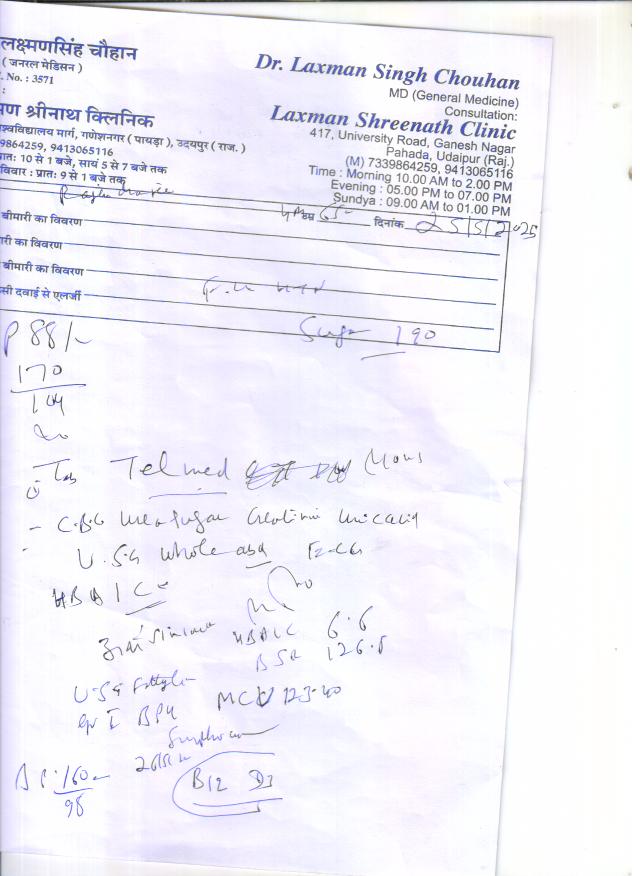 लक्ष्मणसिंह चौहान
( जनरल मेडिसन )
. No. : 3571
:
पण श्रीनाथ क्लिनिक
श्वविद्यालय मार्ग, गणेशनगर ( पायड़ा ), उदयपुर ( राज. )
9864259, 9413065116
प्रातः 10 से 1 बजे, सायं 5 से 7 बजे तक
विवार : प्रातः 9 से 1 बजे तक
Dr. Laxman Singh Chouhan
MD (General Medicine)
Consultation:
Laxman Shreenath Clinic
417, University Road, Ganesh Nagar
Pahada, Udaipur (Raj.)
(M) 7339864259, 9413065116
Time : Morning 10.00 AM to 2.00 PM
Evening : 05.00 PM to 07.00 PM
Sundya : 09.00 AM to 01.00 PM
उम्र 65 दिनांक 25/5/2025
बीमारी का विवरण
ारी का विवरण
बीमारी का विवरण
सी दवाई से एलर्जी
HTN
Sugar 190
P 88/-
170
104
Tab Telmed
- C.B.C Urea Sugar Creatinine Uric acid
U.S.G whole abd E.C.G
HBA1C
HBA1C 6.6
BSR 126.5
U.S.G Fatty liver
gr I BPH MCV 123.40
BP: 160
98
B12 D3